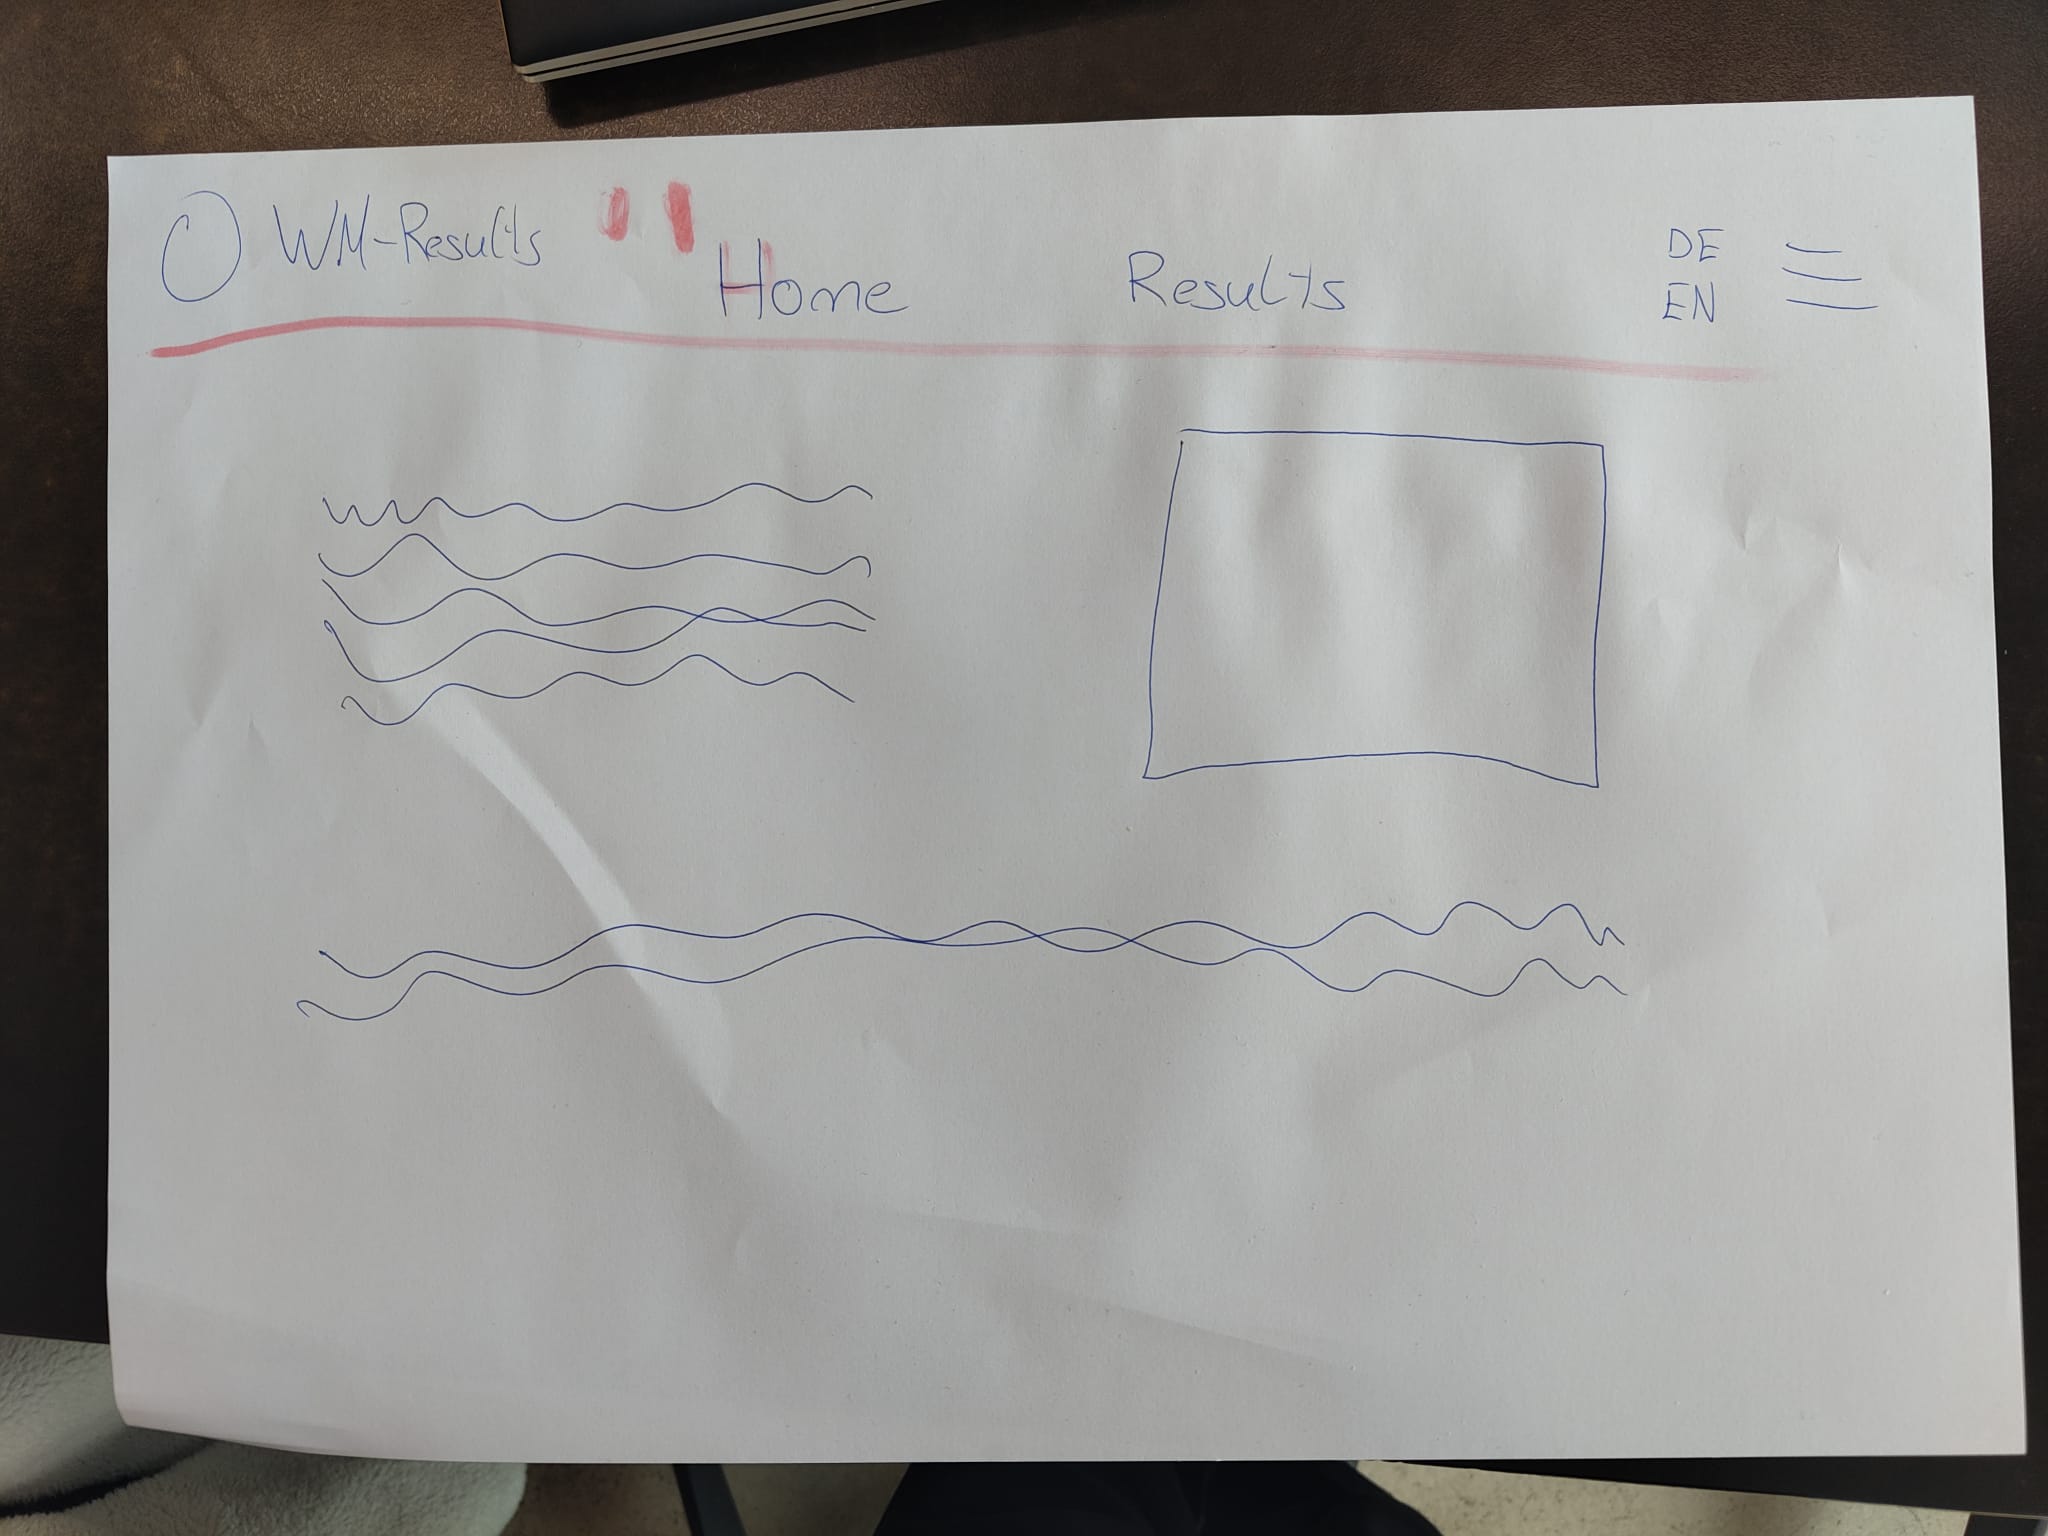 WM-Results
Home
Results
DE
EN